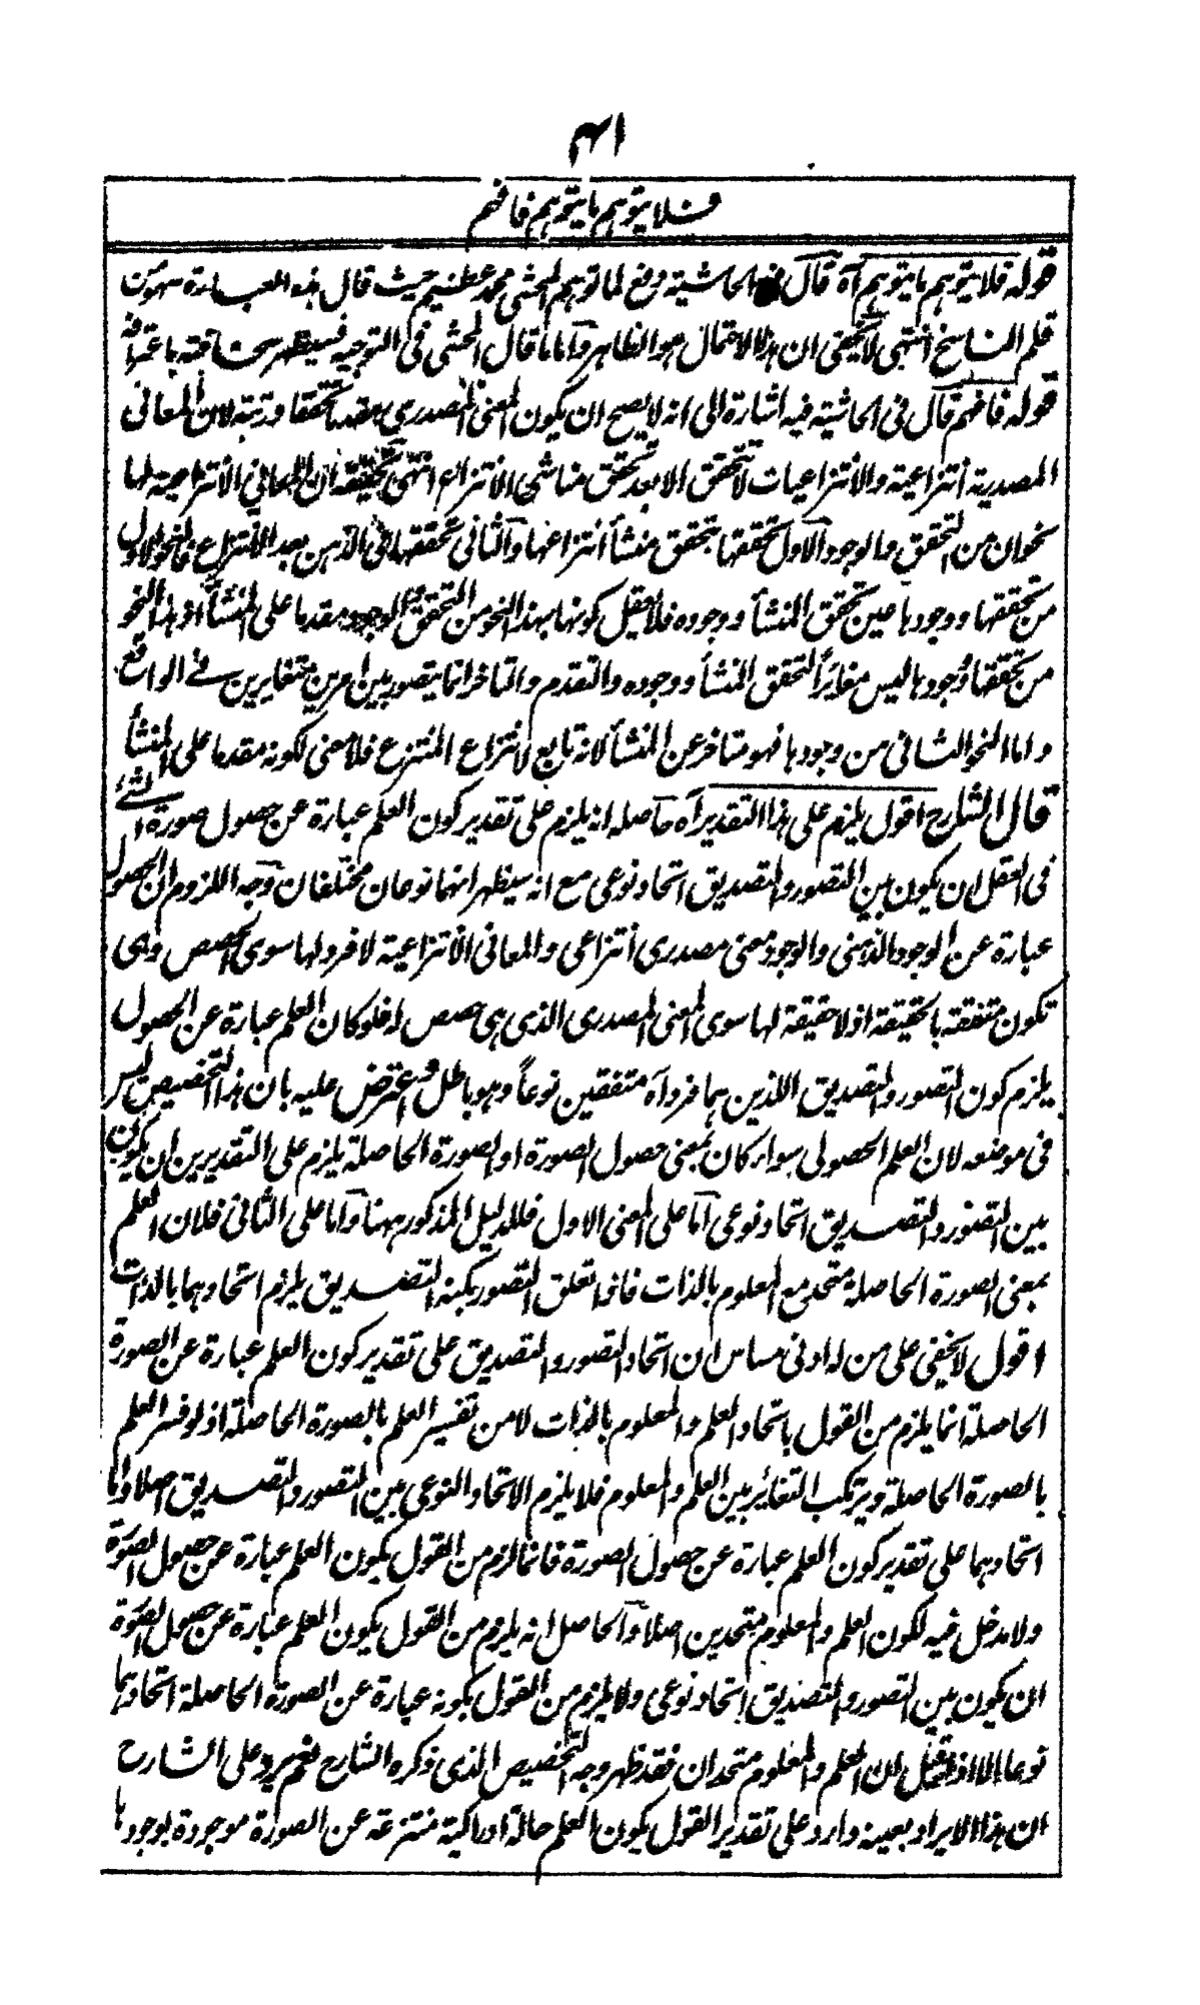 ۱۴۱
فلا يتوهم ما يتوهم فافهم
قوله فلا يتوهم ما يتوهم آه قال في الحاشية دفع لما توهم المحشي محمد عظيم حيث قال هذه العبارة سهو من
قلم الناسخ انتهى لا يخفى ان هذا الاحتمال هو الظاهر واما ما قال المحشي في التوجيه فسيظهر سخافته باعترافه
قوله فافهم قال في الحاشية فيه اشارة الى انه لا يصح ان يكون المعنى المصدري مقدما تحققا ورتبة لان المعاني
المصدرية انتزاعية والانتزاعيات لا تتحقق الا بعد تحقق مناشي الانتزاع انتهى تحقيقه ان المعاني الانتزاعية لها
نحوان من التحقق والوجود الاول تحققها بتحقق منشأ انتزاعها والثاني تحققها في الذهن بعد الانتزاع فالنحو الاول
من تحققها ووجودها عين تحقق المنشأ ووجوده فلا يعقل كونها بهذا النحو من التحقق والوجود مقدما على المنشأ اذ هذا النحو
من تحققها ووجودها ليس مغايرا لتحقق المنشأ ووجوده والتقدم والتاخر انما يتصور بين امرين متغايرين في الواقع
واما النحو الثاني من وجودها فهو متاخر عن المنشأ لانه تابع لانتزاع المنتزع فلا معنى لكونه مقدما على المنشأ
قال الشارح اقول يلزم على هذا التقدير آه حاصله انه يلزم على تقدير كون العلم عبارة عن حصول صورة الشئ
في العقل ان يكون بين التصور والتصديق اتحاد نوعي مع انه سيظهر انهما نوعان مختلفان وجه اللزوم ان الحصول
عبارة عن الوجود الذهني والوجود معنى مصدري انتزاعي والمعاني الانتزاعية لا فرد لها سوى الحصص وهي
تكون متفقة بالحقيقة اذ لا حقيقة لها سوى المعنى المصدري الذي هي حصص له فلو كان العلم عبارة عن الحصول
يلزم كون التصور والتصديق اللذين هما فرداه متفقين نوعاً وهو باطل واعترض عليه بان هذا التخصيص ليس
في موضعه لان العلم الحصولي سواء كان بمعنى حصول الصورة او الصورة الحاصلة يلزم على التقديرين ان يكون
بين التصور والتصديق اتحاد نوعي اما على المعنى الاول فللدليل المذكور ههنا واما على الثاني فلان العلم
بمعنى الصورة الحاصلة متحد مع المعلوم بالذات فاذا تعلق التصور بكنه التصديق يلزم اتحادهما بالذات
اقول لا يخفى على من له ادنى مساس ان اتحاد التصور والتصديق على تقدير كون العلم عبارة عن الصورة
الحاصلة انما يلزم من القول باتحاد العلم والمعلوم بالذات لا من تفسير العلم بالصورة الحاصلة اذ لو فسر العلم
بالصورة الحاصلة ويرتكب التغائر بين العلم والمعلوم فلا يلزم الاتحاد النوعي بين التصور والتصديق اصلا واما
اتحادهما على تقدير كون العلم عبارة عن حصول الصورة فانما لزم من القول بكون العلم عبارة عن حصول الصورة
ولا مدخل فيه لكون العلم والمعلوم متحدين اصلا والحاصل انه يلزم من القول بكون العلم عبارة عن حصول الصورة
ان يكون بين التصور والتصديق اتحاد نوعي ولا يلزم من القول بكونه عبارة عن الصورة الحاصلة اتحادهما
نوعا الا اذا قيل ان العلم والمعلوم متحدان فقد ظهر وجه التخصيص الذي ذكره الشارح نعم يرد على الشارح
ان هذا الايراد بعينه وارد على تقدير القول بكون العلم حالة ادراكية منتزعة عن الصورة موجودة بوجودها